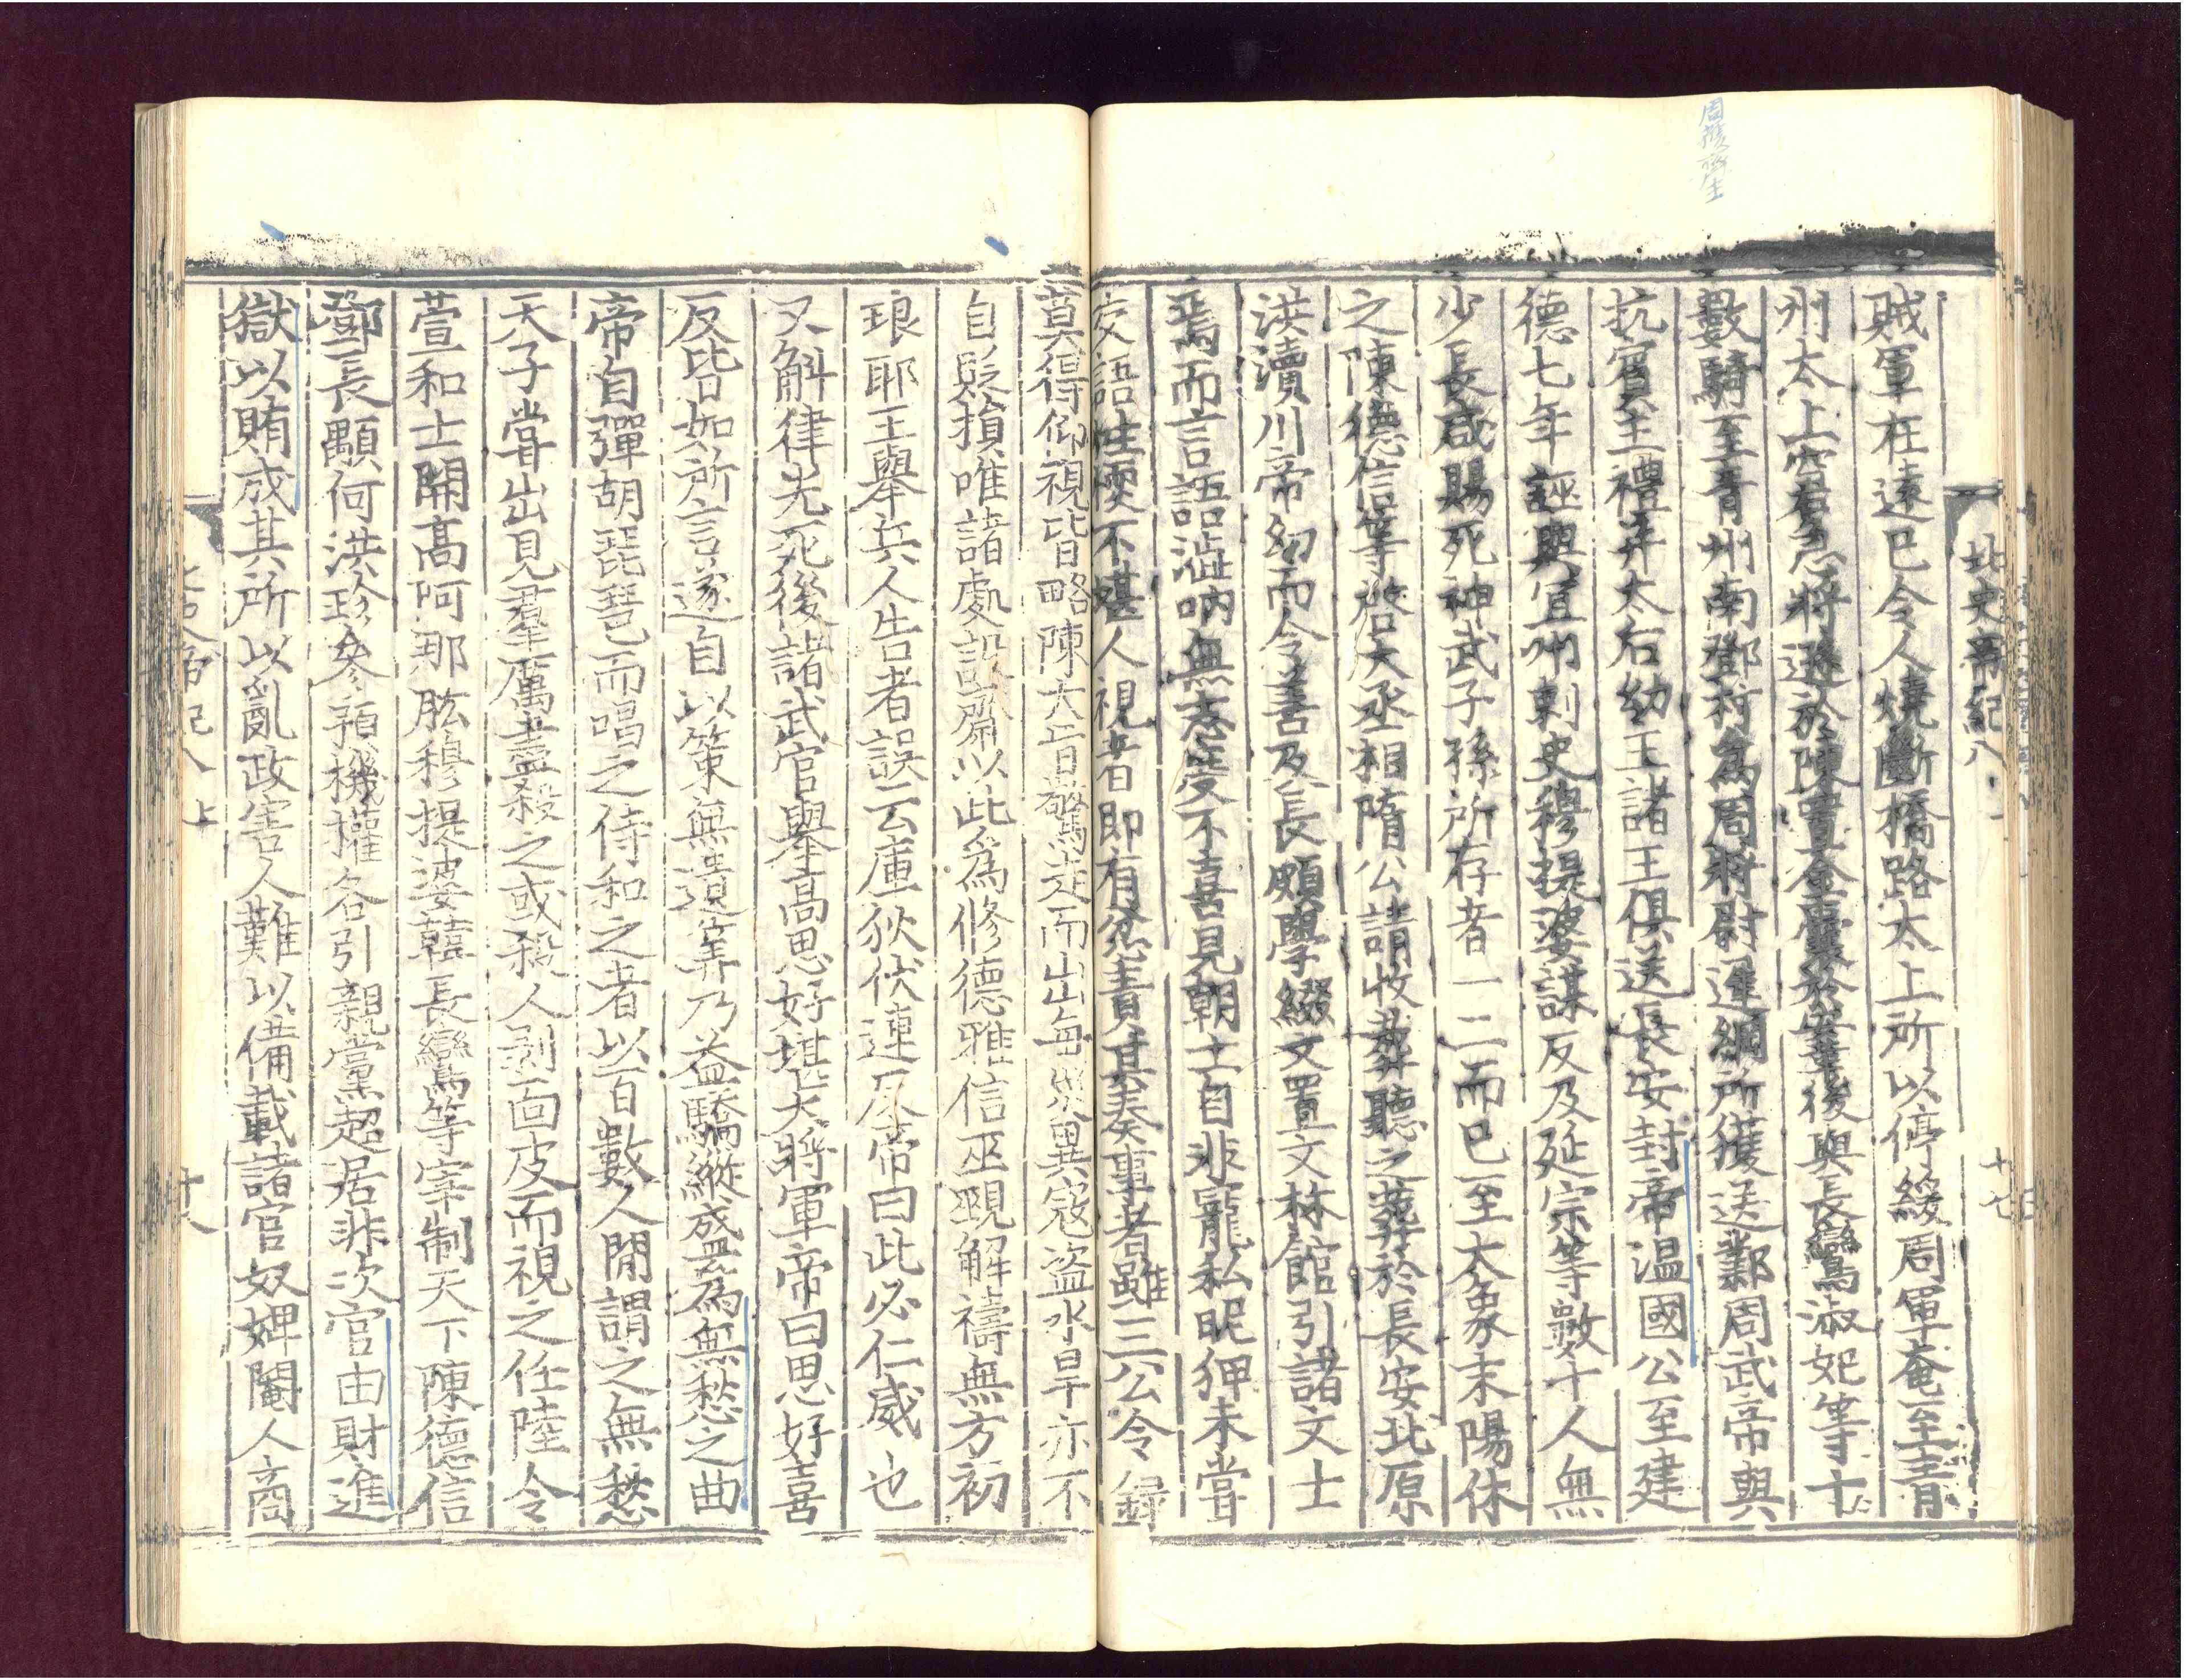 北史帝紀八 十七
賊軍在遠已令人燒斷橋路太上所以停緩周軍奄至青
州太上窘急將遜於陳置金囊於鞍後與長鸞淑妃等十
數騎至青州南鄧村為周將尉遲綱所獲送鄴周武帝與
抗賓主禮并太后幼主諸王俱送長安封帝温國公至建
德七年誣與宜州刺史穆提婆謀反及延宗等數十人無
少長咸賜死神武子孫所存者一二而已至大象末陽休
之陳德信等啓大丞相隋公請收葬聽之葬於長安北原
洪瀆川帝幼而令善及長頗學綴文置文林館引諸文士
焉而言語澁呐無志度不喜見朝士自非寵私昵狎未嘗
交語性懦不堪人視者即有忿責其奏事者雖三公令録
莫得仰視皆略陳大旨驚走而出每災異寇盜水旱亦不
自貶損唯諸處設齋以此為修德雅信巫覡解禱無方初
琅耶王舉兵人告者誤云庫狄伏連反帝曰此必仁威也
又斛律光死後諸武官舉高思好堪大將軍帝曰思好喜
反皆如所言遂自以策無遺筭乃益驕縱盛為無愁之曲
帝自彈胡琵琶而唱之侍和之者以百數人間謂之無愁
天子嘗出見羣厲盡殺之或殺人剥面皮而視之任陸令
萱和士開高阿那肱穆提婆韓長鸞等宰制天下陳德信
鄧長顒何洪珍參預機權各引親黨超居非次官由財進
獄以賄成其所以亂政害人難以備載諸官奴婢閹人商
帝紀八上 十八